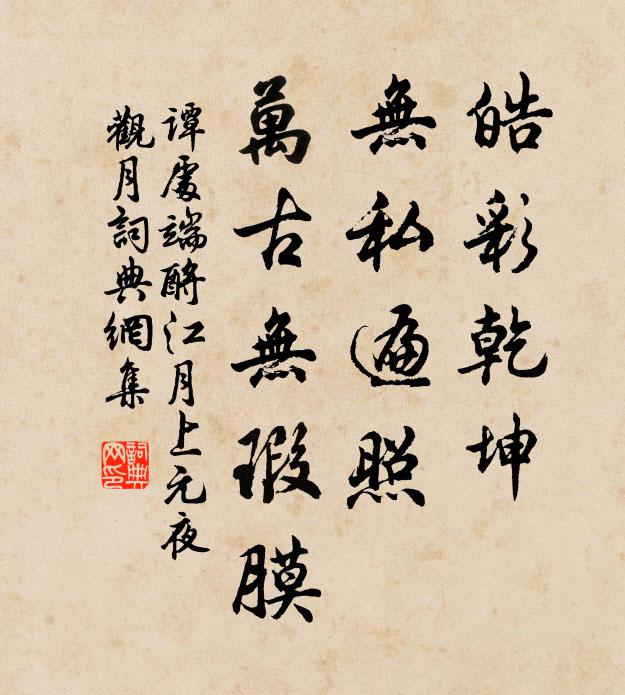 皓彩乾坤
無私遍照
萬古無瑕膜
譚處端酹江月上元夜
觀月詞典網集
詞典网印